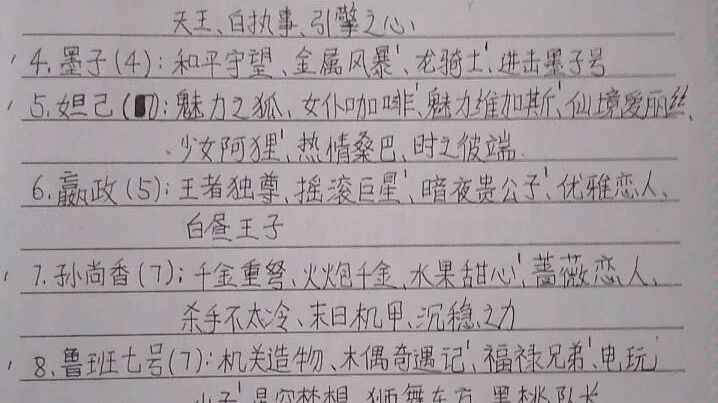 天王、白执事、引擎之心
4.墨子(4):和平守望、金属风暴、龙骑士、进击墨子号
5.妲己(7):魅力之狐、女仆咖啡、魅力维加斯、仙境爱丽丝、
少女阿狸、热情桑巴、时之彼端.
6.嬴政(5):王者独尊、摇滚巨星、暗夜贵公子、优雅恋人、
白昼王子
7.孙尚香(7):千金重弩、火炮千金、水果甜心、蔷薇恋人、
杀手不太冷、末日机甲、沉稳之力
8.鲁班七号(7):机关造物、木偶奇遇记、福禄兄弟、电玩
小子、星空梦想、狮舞东方、黑桃队长